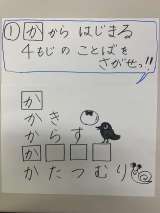 ① か から はじまる
4もじ の ことばを
さがせっ!!
か
かき
からす
か□□□
かたつむり